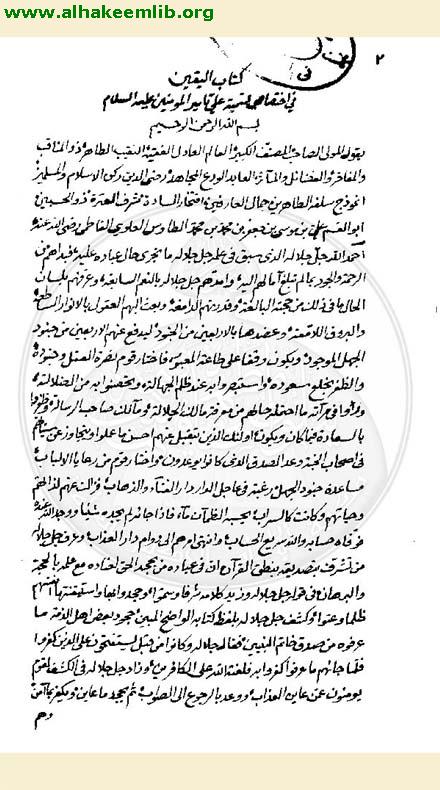 www.alhakeemlib.org
٢
في
كتاب اليقين
في اختصاص تسمية علي بأمير المؤمنين عليه السلام
بسم الله الرحمن الرحيم
يقول المولى الصاحب المصنف الكبير العالم العادل الفقيه النقيب الطاهر ذو المناقب
والمفاخر والفضائل والمآثر العابد الورع المجاهد رضي الدين ركن الاسلام والمسلمين
انموذج سلفه الطاهرين جمال العارفين افتخار السادة شرف العترة ذو الحسبين
ابو القسم علي بن موسى بن جعفر بن محمد بن محمد الطاوس العلوي الفاطمي رضي الله عنه
احمد الله جل جلاله الذي سبق في علم جل جلاله ما تجري حال عباده عليه فبدأهم من
الرحمة والجود بما لم تبلغ آمالهم اليه وامدهم جل جلاله بالنعم السابغة وعرفهم بلسان
الحال ما في ذلك من حجته البالغة وقدرته الدامغة وبعث اليهم العقول بالانوار الساطعة
والبروق اللامعة وعضدها بالاربعين من الجنود ليدفع عنهم الاربعين من جنود
الجهل الموجود ويكون وقفا على طاعة المعبود فاختار قوم نصرة العقل وجنوده
والظفر بخلع سعوده واستبصروا به عند ظلم الجهالة وتحصنوا به من الضلالة
ورأوا في مرآته ما احتمله حالهم من معرفة مالك الجلالة ومالك صاحب الرسالة وظفروا
بالسعادة فيما كان ويكون اولئك الذين نتقبل عنهم احسن ما عملوا ونتجاوز عن سيئاتهم
في اصحاب الجنة وعد الصدق الذي كانوا يوعدون واختار قوم من رعايا الالباب
مساعدة جنود الجهل رغبة في عاجل الدار دار الفناء والذهاب فزالت عنهم لذاتهم
وحياتهم وكانت كالسراب يحسبه الظمآن ماء فاذا جاءه لم يجده شيئا ووجد الله عنده
فوفاه حسابه والله سريع الحساب وانتهى امرهم الى دوام دار العذاب وعرف جل جلاله
من تشرف بتصديقه بنطق القرآن ان في عباده من يجحد الحق اعتاده مع علمه بالحجة
والبرهان في قوله جل جلاله وزيد كلامه شرفا وسموا وجحدوا بها واستيقنتها انفسهم
ظلما وعتوا وكشف جل جلاله بلفظ كتابه الواضح المبين جحود بعض اهل الذمة ما
عرفوه من صدق خاتم النبيين فقال جلاله وكانوا من قبل يستفتحون على الذين كفروا
فلما جاءهم ما عرفوا كفروا به فلعنة الله على الكافرين وزاد جل جلاله في الكشف لقوم
يومنون عمن عاين العذاب ووعد بالرجوع الى الصواب ثم يجحد ما عاين ويكفر بما آمن
وهم